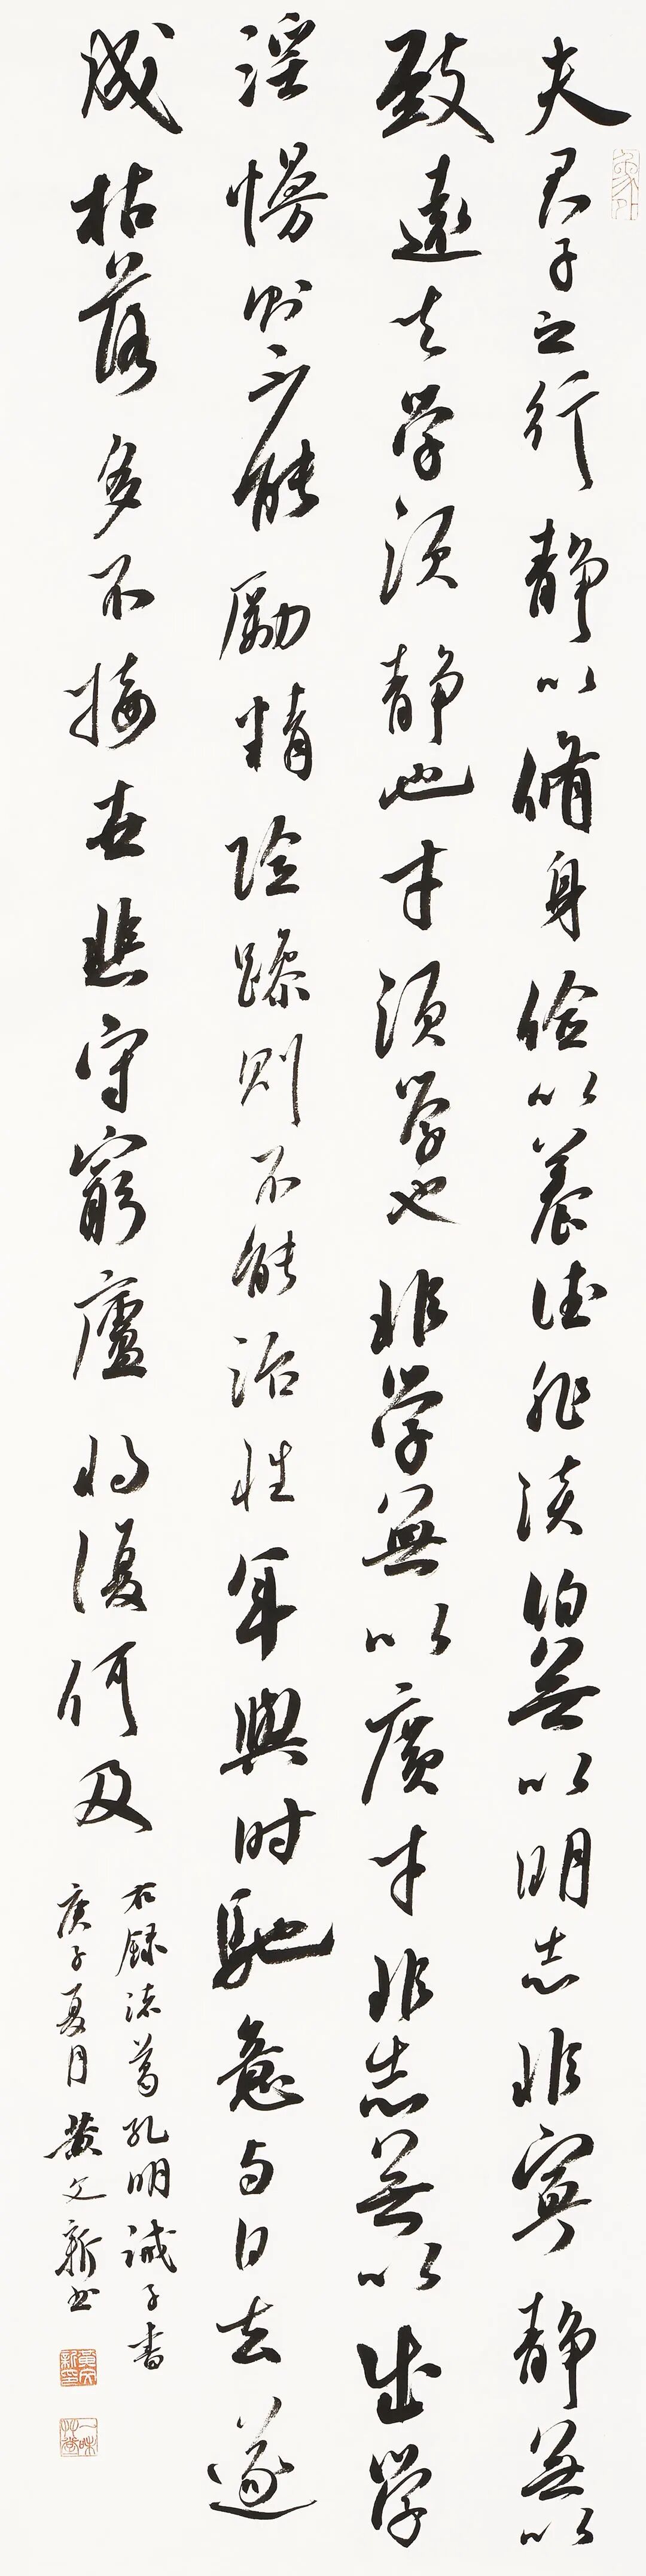 夫君子之行静以脩身俭以養德非淡泊無以明志非寧静無以
致遠夫学須静也才須学也非学無以廣才非志無以成学
淫慢则不能励精险躁则不能治性年與时馳意与日去遂
成枯落多不接世悲守窮廬将復何及
右録诸葛孔明诫子書
庚子夏月黄文新书
黄文新印